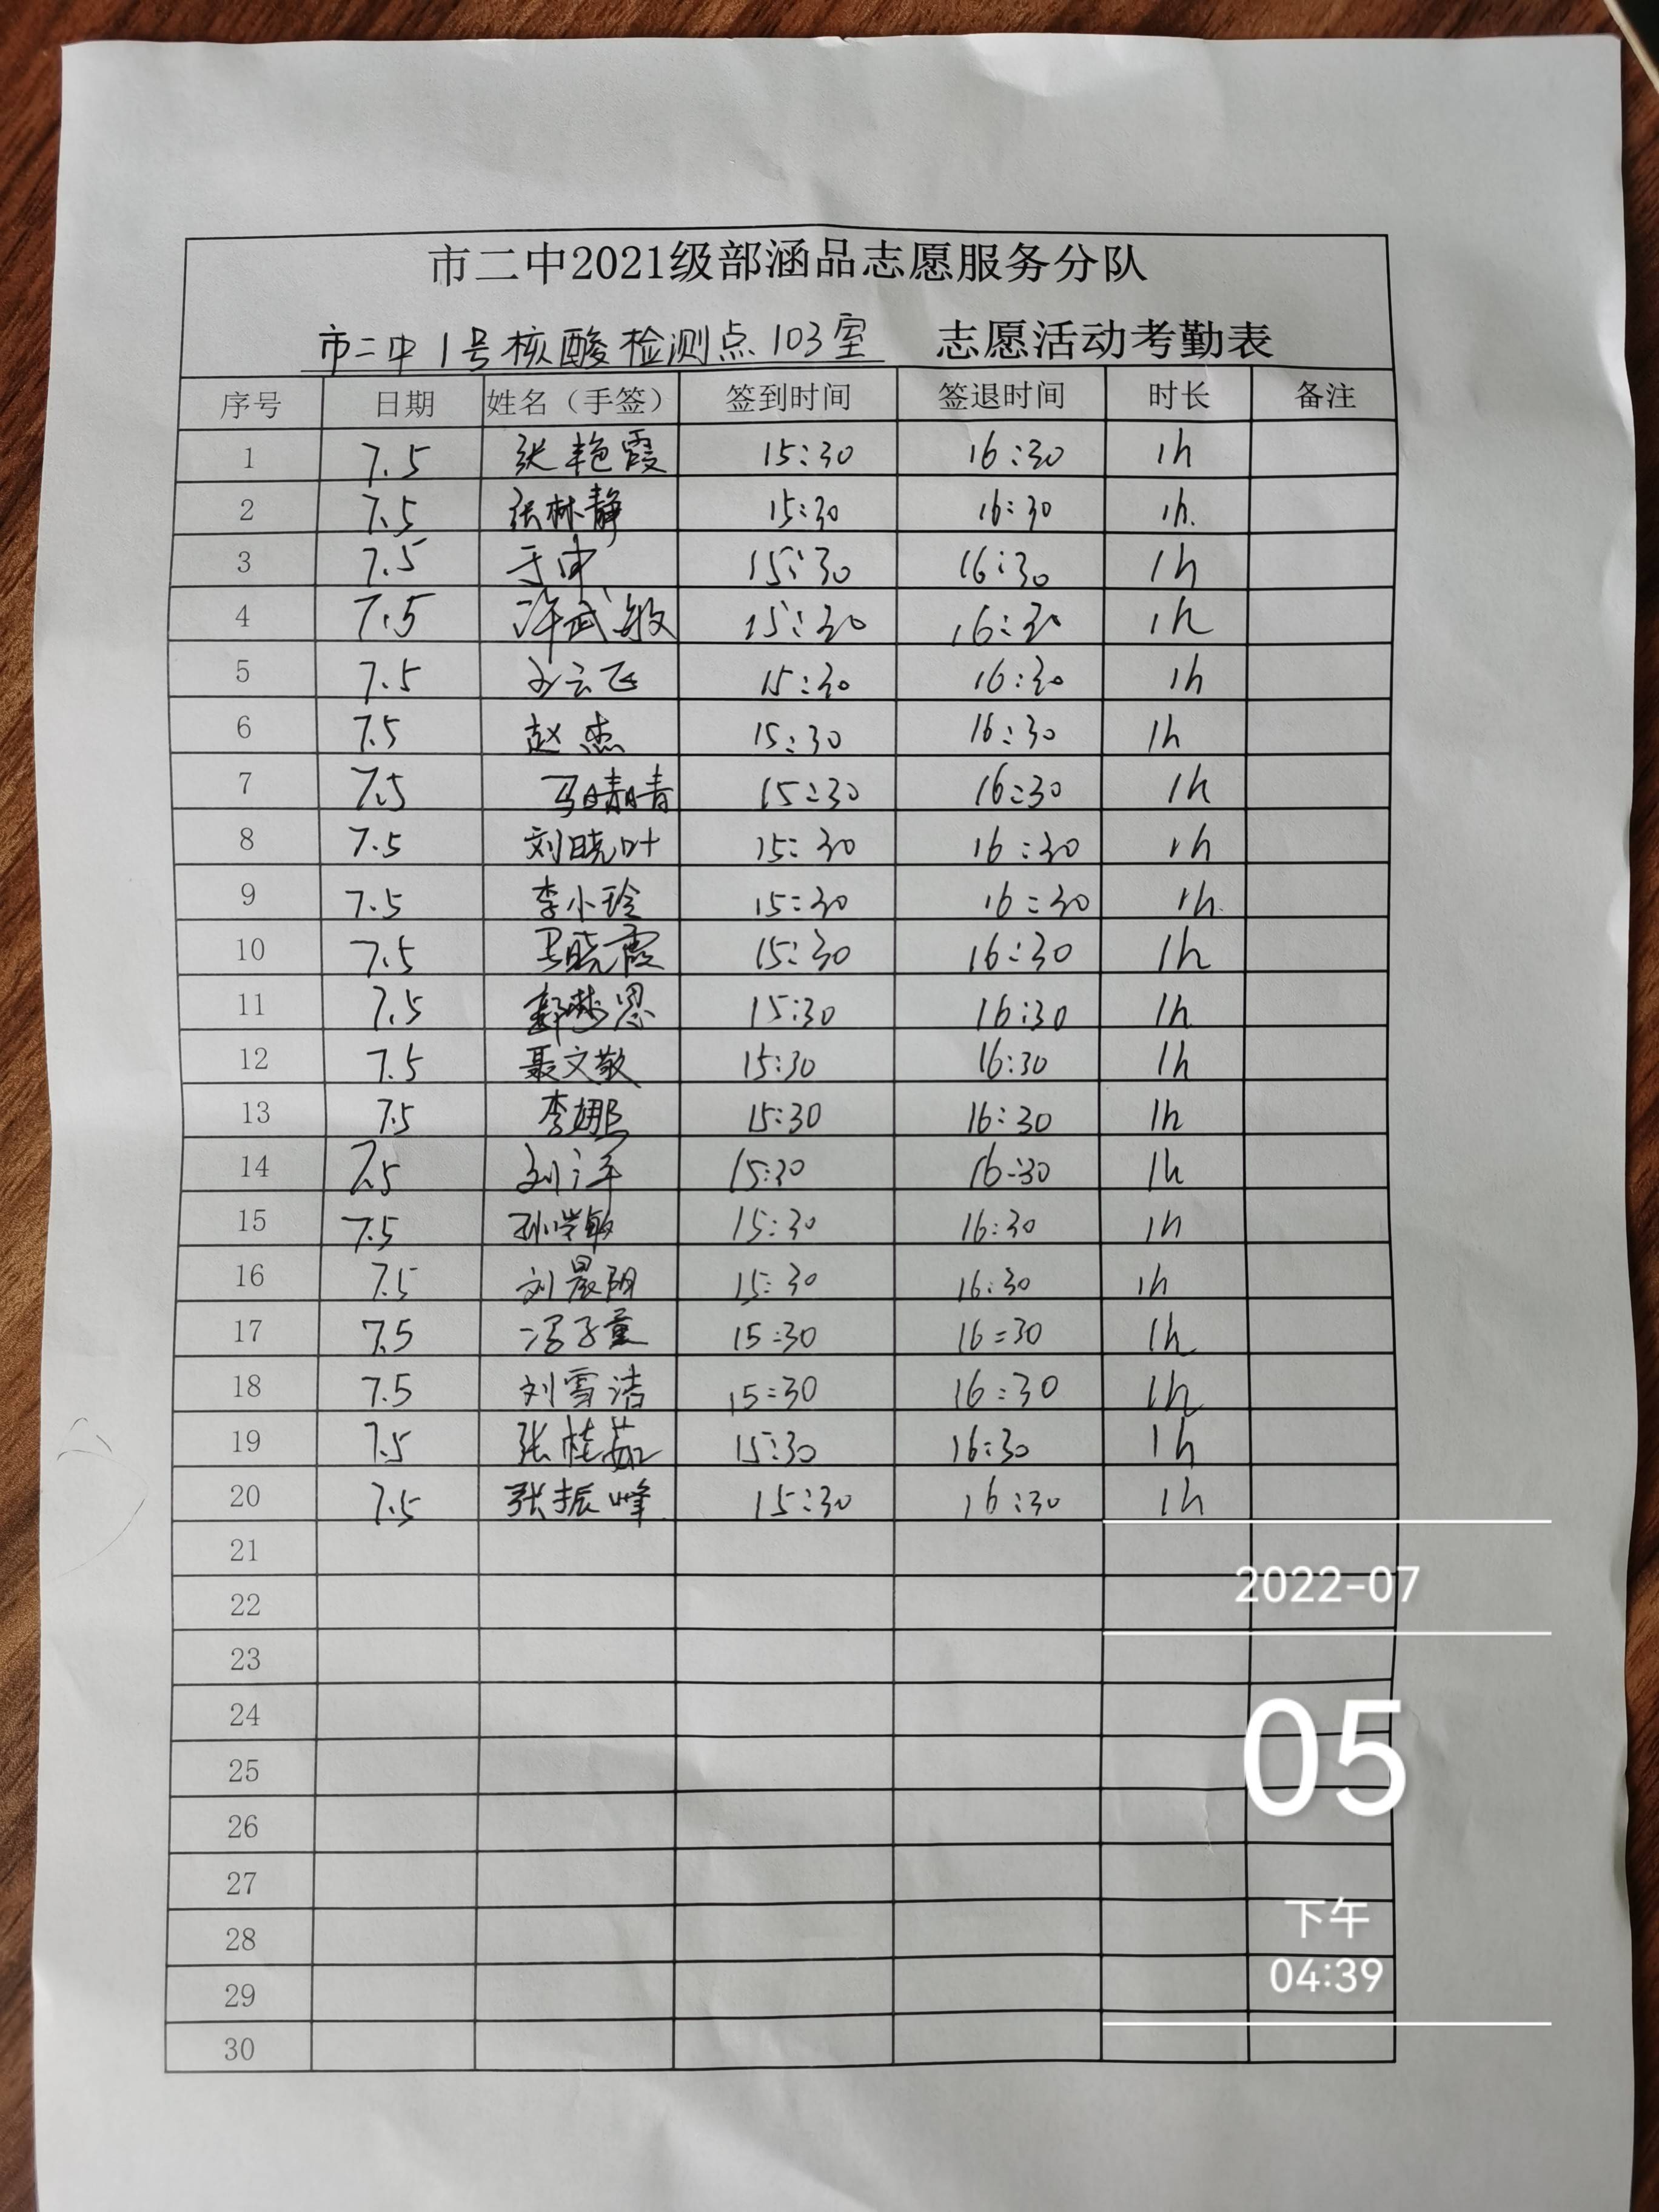 市二中2021级部涵品志愿服务分队
市二中1号核酸检测点103室 志愿活动考勤表
序号 日期 姓名（手签） 签到时间 签退时间 时长 备注
1 7.5 张艳霞 15:30 16:30 1h
2 7.5 张林静 15:30 16:30 1h.
3 7.5 于申 15:30 16:30 1h
4 7.5 许武敏 15:30 16:30 1h
5 7.5 云飞 15:30 16:30 1h
6 7.5 赵杰 15:30 16:30 1h
7 7.5 马晴晴 15:30 16:30 1h
8 7.5 刘晓叶 15:30 16:30 1h
9 7.5 李小玲 15:30 16:30 1h.
10 7.5 马晓霞 15:30 16:30 1h
11 7.5 郭梦恩 15:30 16:30 1h
12 7.5 聂文敬 15:30 16:30 1h
13 7.5 李娜 15:30 16:30 1h
14 7.5 刘洋 15:30 16:30 1h
15 7.5 孙学敏 15:30 16:30 1h
16 7.5 刘晨阳 15:30 16:30 1h
17 7.5 冯子童 15:30 16:30 1h
18 7.5 刘雪洁 15:30 16:30 1h
19 7.5 张桂茹 15:30 16:30 1h
20 7.5 张振峰 15:30 16:30 1h
21
22
23
24
25
26
27
28
29
30
2022-07
05
下午
04:39